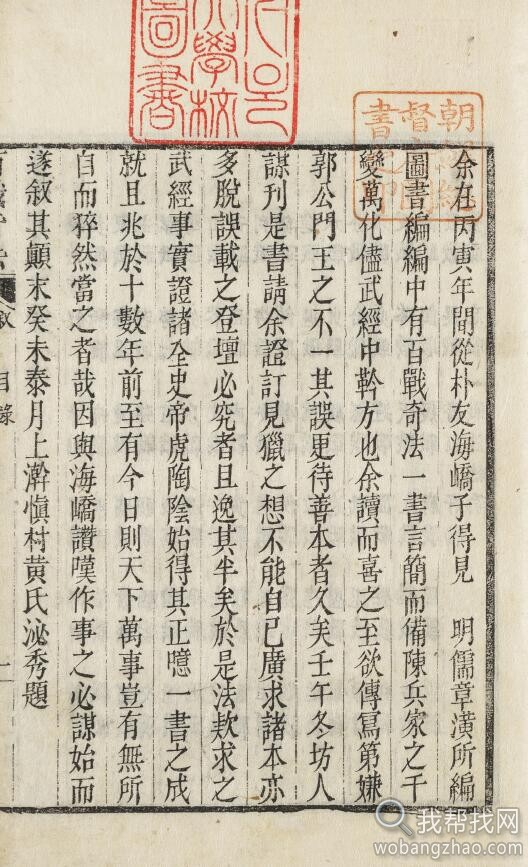 余在丙寅年間從朴友海嶠子得見　明儒章潢所編
圖書編編中有百戰奇法一書言簡而備陳兵家之千
變萬化儘武經中斡方也余讀而喜之至欲傳寫第嫌
郭公門王之不一其誤更待善本者久矣壬午冬坊人
謀刊是書請余證訂見獵之想不能自已廣求諸本亦
多脫誤載之登壇必究者且逸其半矣於是法欵求之
武經事實證諸全史帝虎陶陰始得其正噫一書之成
就且兆於十數年前至有今日則天下萬事豈有無所
自而猝然當之者哉因與海嶠讚嘆作事之必謀始而
遂叙其顛末癸未泰月上澣愼村黃氏泌秀題
叙
目錄
一
大學校
圖書
朝
督
書
我帮找网
wobangzhao.com